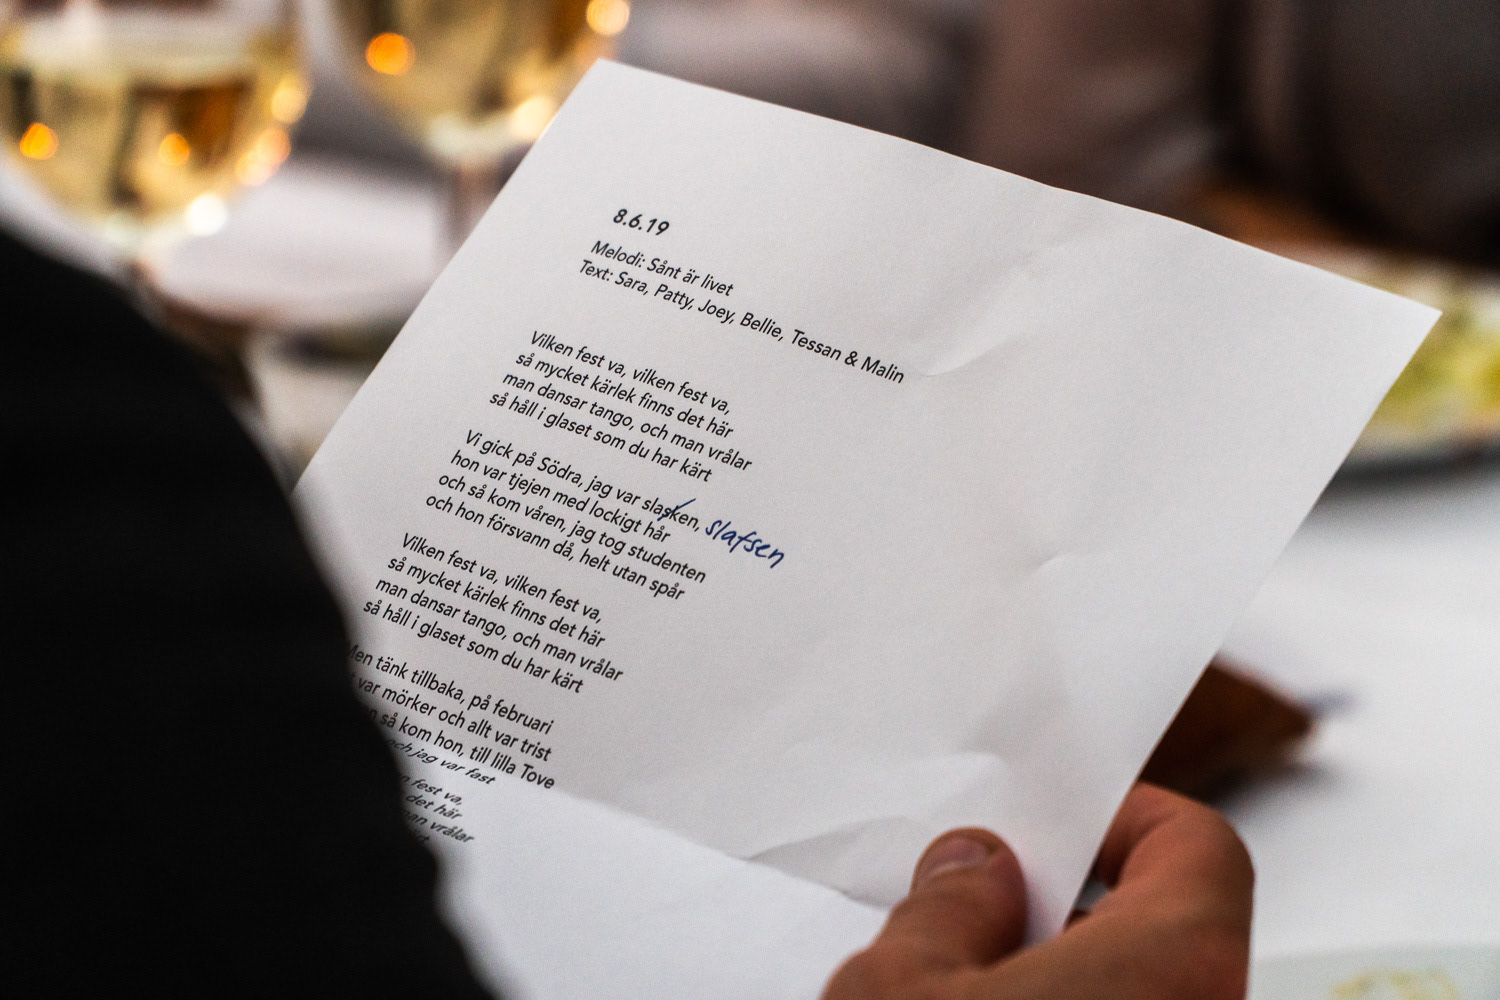 8.6.19
Melodi: Sånt är livet
Text: Sara, Patty, Joey, Bellie, Tessan & Malin
Vilken fest va, vilken fest va,
så mycket kärlek finns det här
man dansar tango, och man vrålar
så håll i glaset som du har kärt
Vi gick på Södra, jag var slasken, slafsen
hon var tjejen med lockigt hår
och så kom våren, jag tog studenten
och hon försvann då, helt utan spår
Vilken fest va, vilken fest va,
så mycket kärlek finns det här
man dansar tango, och man vrålar
så håll i glaset som du har kärt
Men tänk tillbaka, på februari
var mörker och allt var trist
så kom hon, till lilla Tove
och jag var fast
fest va,
det här
man vrålar